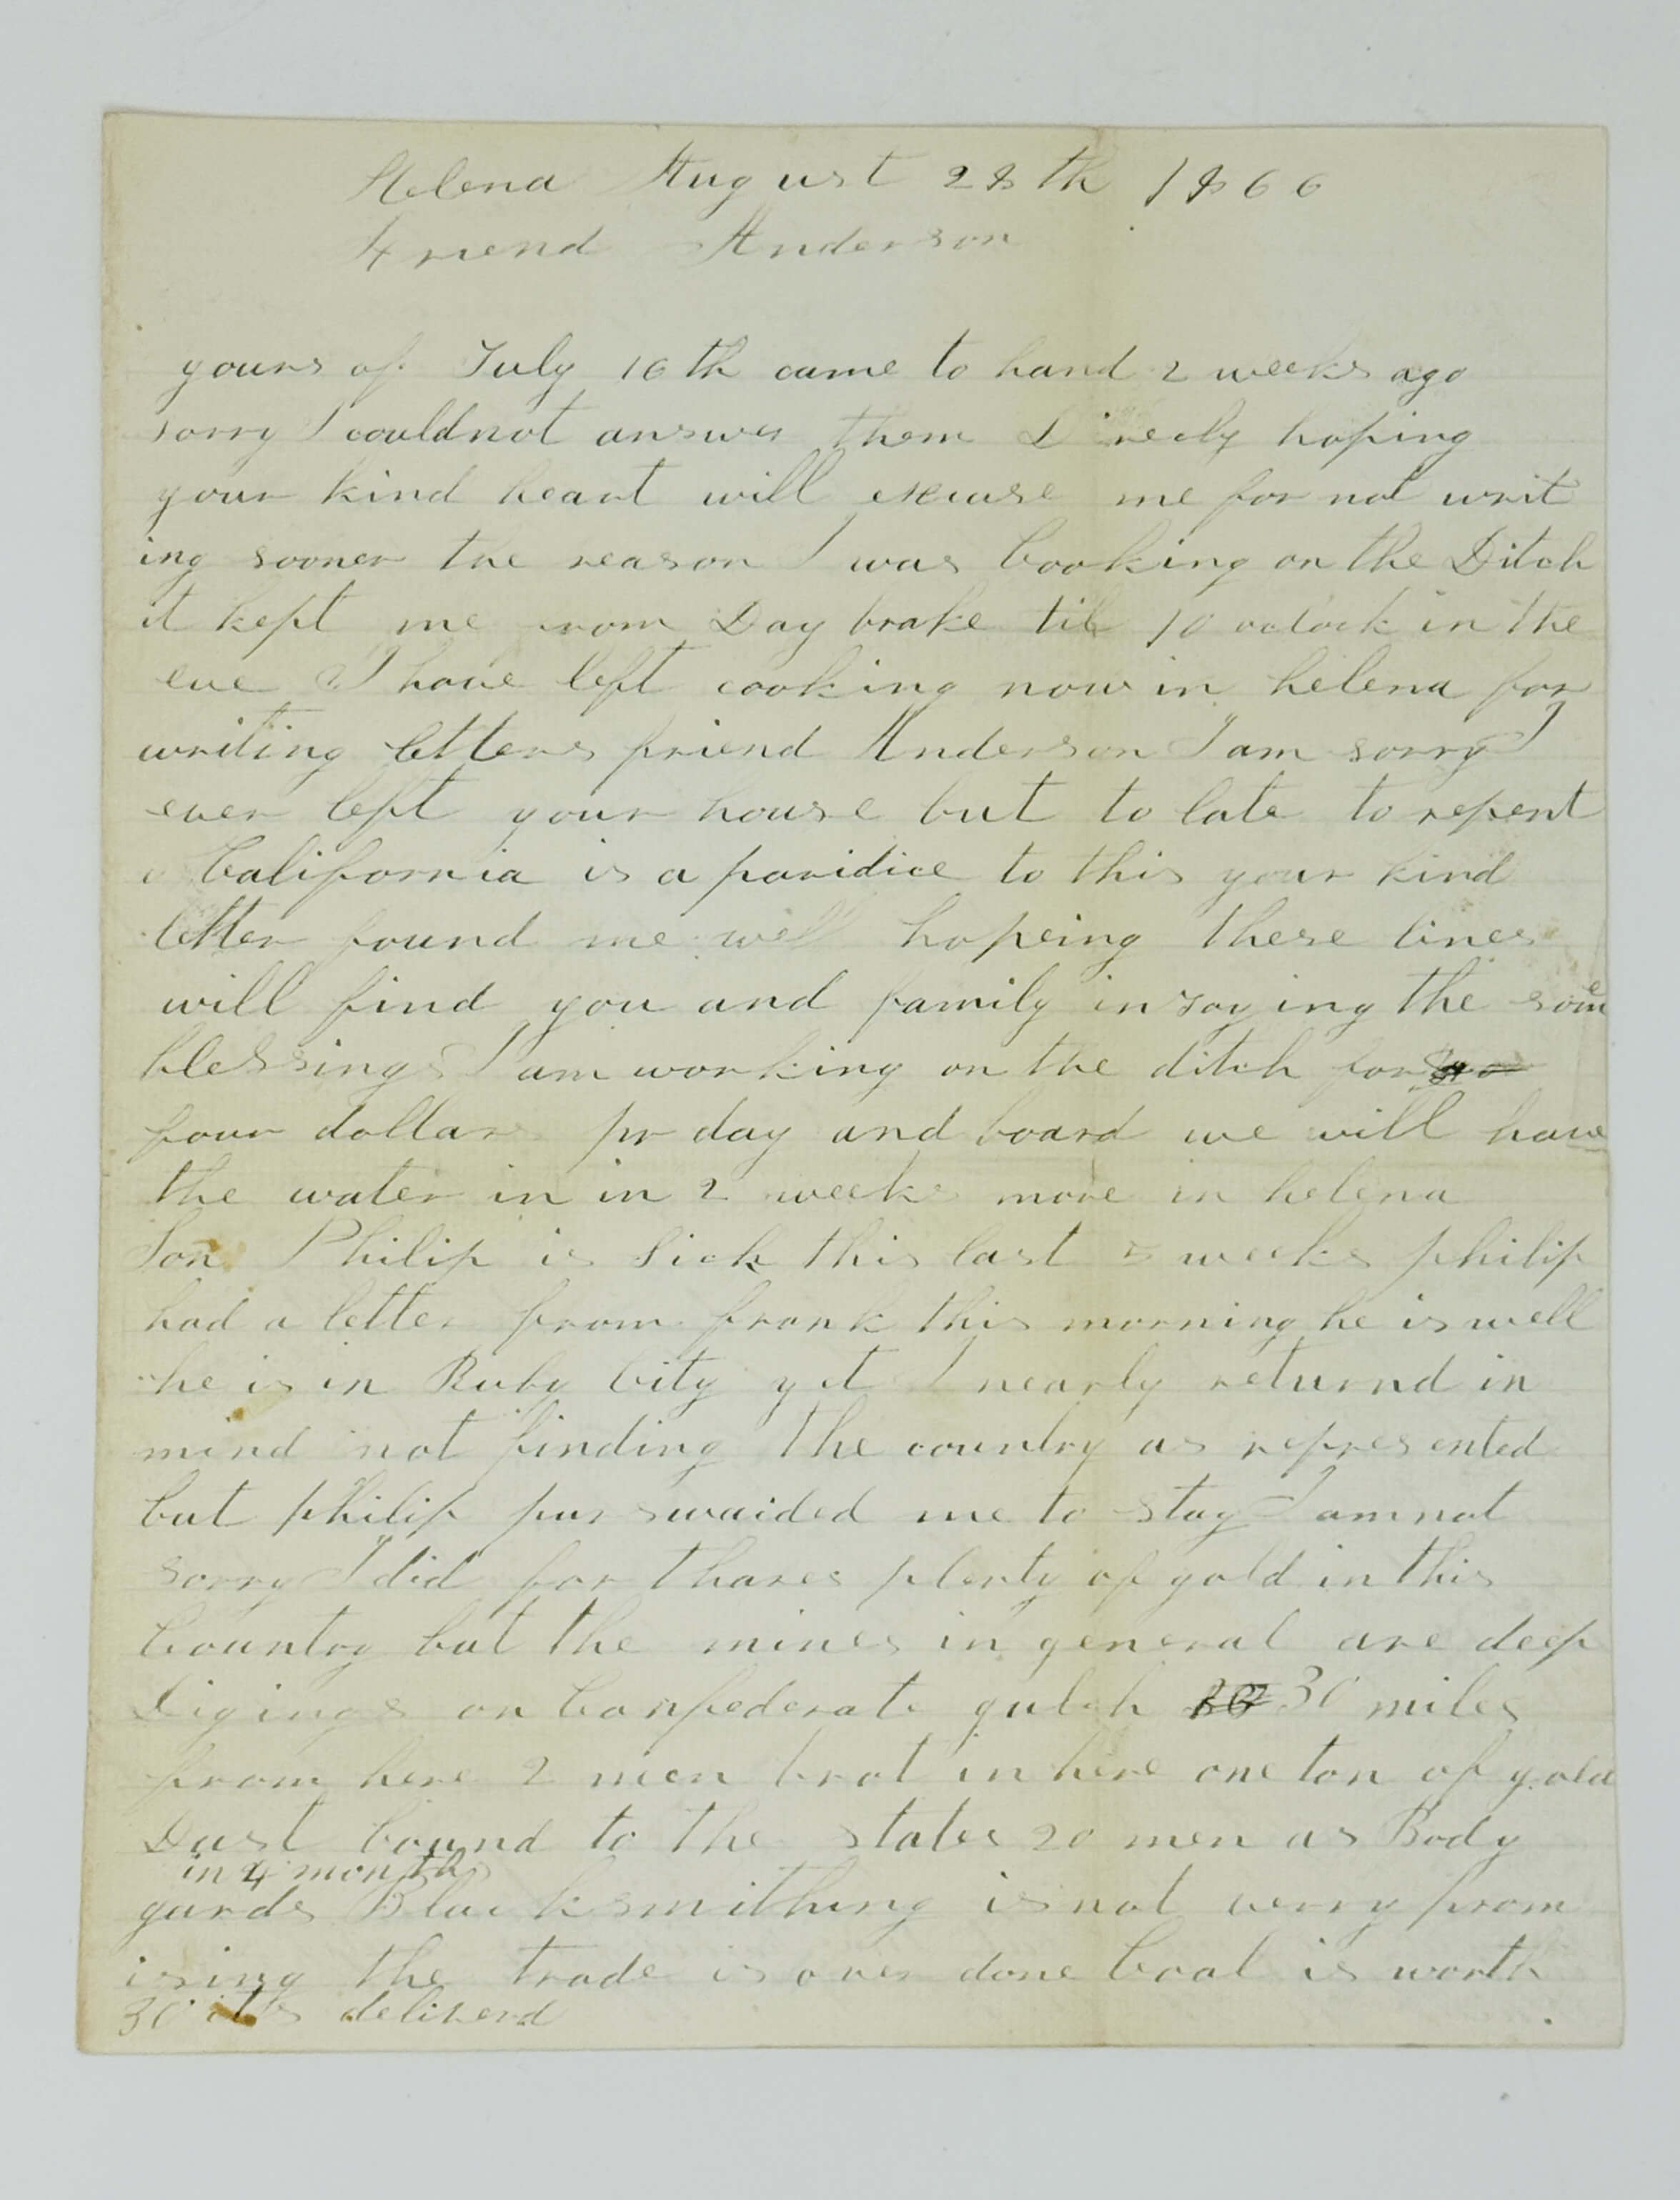 Helena August 28th 1866
Friend Anderson
yours of July 16th came to hand 2 weeks ago
sorry I couldnot answer them Direcly hoping
your kind heart will excuse me for not writ
ing sooner the reason I was Cooking on the Ditch
it kept me from Day brake til 10 oclock in the
eve I have left cooking now in helena for
writing letters friend Anderson I am sorry I
ever left your house but to late to repent
California is a paridice to this your kind
letter found me well hopeing these lines
will find you and family insoying the same
blessings I am working on the ditch for
four dollars pr day and board we will have
the water in in 2 weeks more in helena
Son Philip is Sick this last 5 weeks philip
had a letter from frank this morning he is well
he is in Ruby City yet I nearly returnd in
mind not finding the country as represented
but philip purswaided me to stay I am not
sorry I did for thares plenty of gold in this
Country but the mines in general are deep
Digings on Confederate gulch 30 miles
from here 2 men brot in here one ton of gold
Dust bound to the states 20 men as Body
in 4 months
gards Blacksmithing is not verry prom
ising the trade is over done Coal is worth
30 cts deliverd